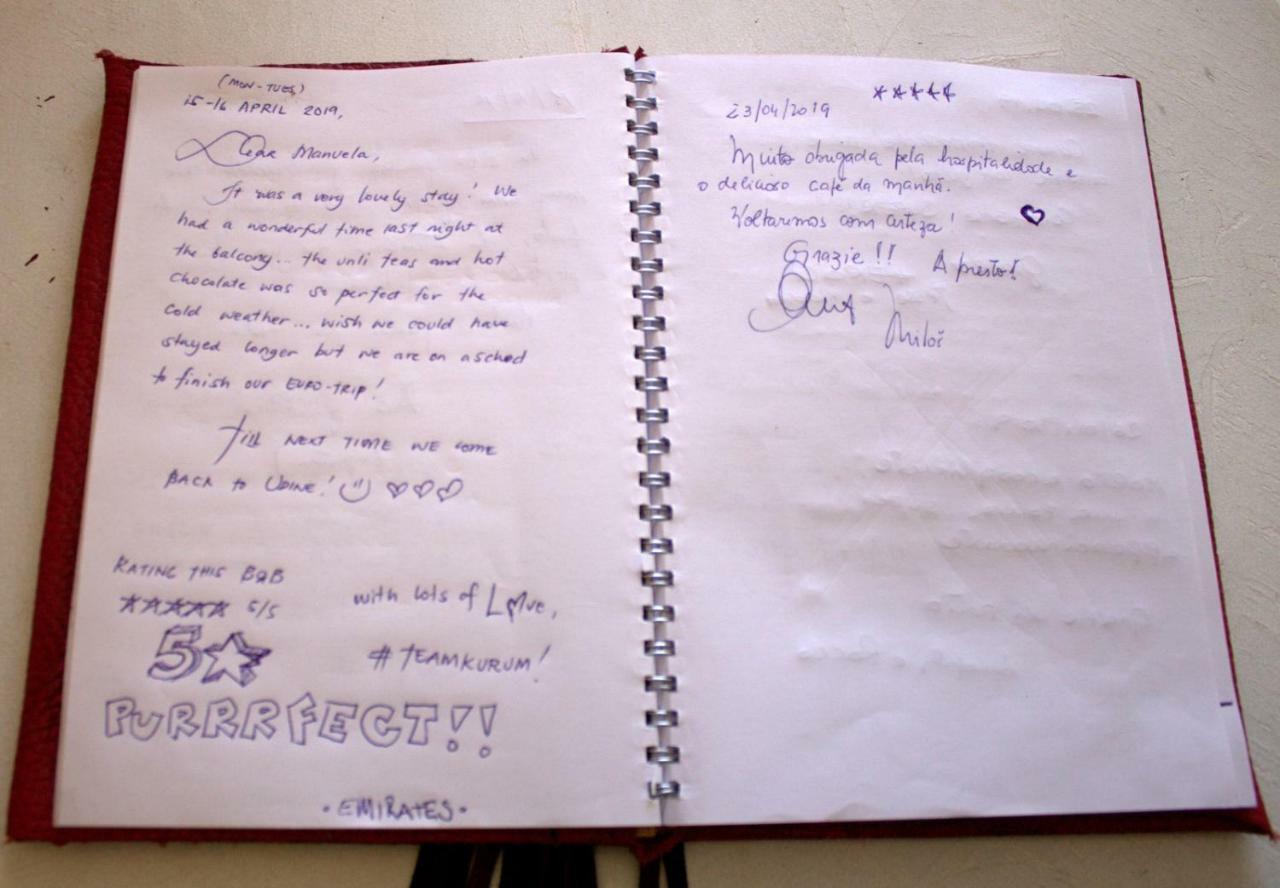 (MON-TUES)
15-16 APRIL 2019,
Dear Manuela,
It was a very lovely stay! We
had a wonderful time last night at
the balcony... the unli teas and hot
chocolate was so perfect for the
cold weather... wish we could have
stayed longer but we are on a sched
to finish our EURO-TRIP!
Till NEXT TIME WE COME
BACK to UDINE! ☺ ♡♡♡
RATING THIS B&B
★★★★★ 5/5
5☆
PURRRFECT!!
with lots of Love,
#TEAMKURUM!
•EMIRATES•
★★★★★
23/04/2019
Muito obrigada pela hospitalidade e
o delicioso café da manhã.
Voltaremos com certeza! ♡
Grazie!! A presto!
Miloš